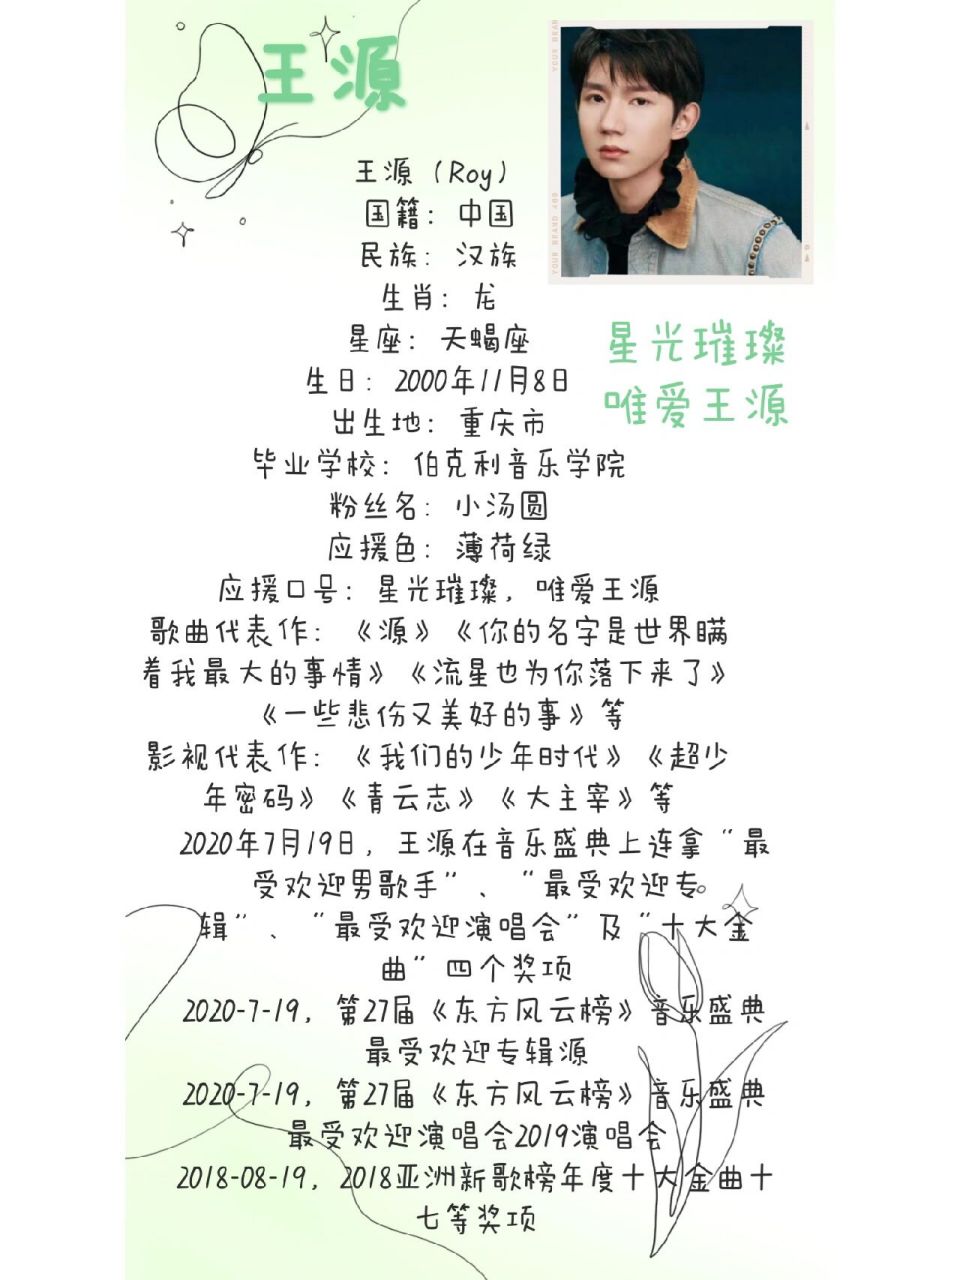 王源
YOUR BRAND
YOUR BRAND 400
王源（Roy）
国籍：中国
民族：汉族
生肖：龙
星座：天蝎座
生日：2000年11月8日
出生地：重庆市
毕业学校：伯克利音乐学院
粉丝名：小汤圆
应援色：薄荷绿
应援口号：星光璀璨，唯爱王源
歌曲代表作：《源》《你的名字是世界瞒
着我最大的事情》《流星也为你落下来了》
《一些悲伤又美好的事》等
影视代表作：《我们的少年时代》《超少
年密码》《青云志》《大主宰》等
2020年7月19日，王源在音乐盛典上连拿“最
受欢迎男歌手”、“最受欢迎专
辑”、“最受欢迎演唱会”及“十大金
曲”四个奖项
2020-7-19，第27届《东方风云榜》音乐盛典
最受欢迎专辑源
2020-7-19，第27届《东方风云榜》音乐盛典
最受欢迎演唱会2019演唱会
2018-08-19，2018亚洲新歌榜年度十大金曲十
七等奖项
星光璀璨
唯爱王源